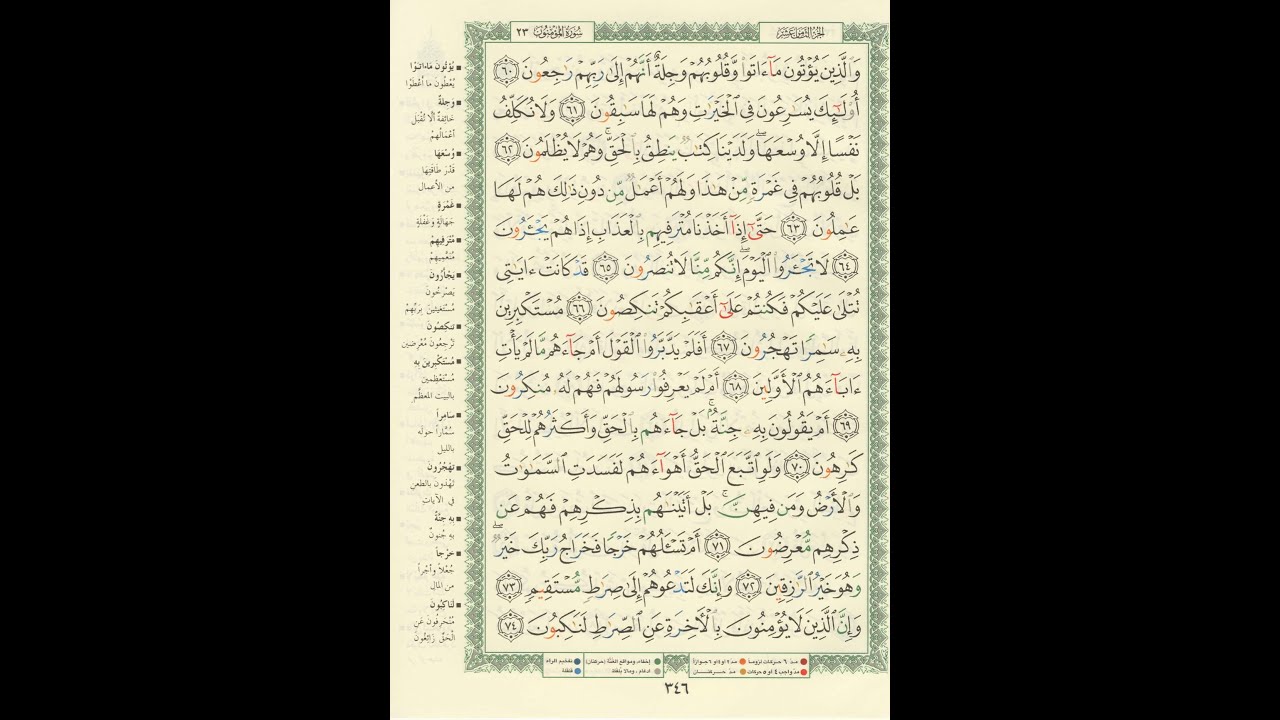 سُورَةُ المُؤْمِنُون ٢٣
الجُزْءُ الثَّامِنَ عَشَرَ
وَٱلَّذِينَ يُؤْتُونَ مَآ ءَاتَوا۟ وَّقُلُوبُهُمْ وَجِلَةٌ أَنَّهُمْ إِلَىٰ رَبِّهِمْ رَٰجِعُونَ ٦٠
أُو۟لَٰٓئِكَ يُسَٰرِعُونَ فِى ٱلْخَيْرَٰتِ وَهُمْ لَهَا سَٰبِقُونَ ٦١ وَلَا نُكَلِّفُ
نَفْسًا إِلَّا وُسْعَهَا ۖ وَلَدَيْنَا كِتَٰبٌ يَنطِقُ بِٱلْحَقِّ ۚ وَهُمْ لَا يُظْلَمُونَ ٦٢
بَلْ قُلُوبُهُمْ فِى غَمْرَةٍ مِّنْ هَٰذَا وَلَهُمْ أَعْمَٰلٌ مِّن دُونِ ذَٰلِكَ هُمْ لَهَا
عَٰمِلُونَ ٦٣ حَتَّىٰٓ إِذَآ أَخَذْنَا مُتْرَفِيهِم بِٱلْعَذَابِ إِذَا هُمْ يَجْـَٔرُونَ
٦٤ لَا تَجْـَٔرُوا۟ ٱلْيَوْمَ ۖ إِنَّكُم مِّنَّا لَا تُنصَرُونَ ٦٥ قَدْ كَانَتْ ءَايَٰتِى
تُتْلَىٰ عَلَيْكُمْ فَكُنتُمْ عَلَىٰٓ أَعْقَٰبِكُمْ تَنكِصُونَ ٦٦ مُسْتَكْبِرِينَ
بِهِۦ سَٰمِرًا تَهْجُرُونَ ٦٧ أَفَلَمْ يَدَّبَّرُوا۟ ٱلْقَوْلَ أَمْ جَآءَهُم مَّا لَمْ يَأْتِ
ءَابَآءَهُمُ ٱلْأَوَّلِينَ ٦٨ أَمْ لَمْ يَعْرِفُوا۟ رَسُولَهُمْ فَهُمْ لَهُۥ مُنكِرُونَ
٦٩ أَمْ يَقُولُونَ بِهِۦ جِنَّةٌۢ ۚ بَلْ جَآءَهُم بِٱلْحَقِّ وَأَكْثَرُهُمْ لِلْحَقِّ
كَٰرِهُونَ ٧٠ وَلَوِ ٱتَّبَعَ ٱلْحَقُّ أَهْوَآءَهُمْ لَفَسَدَتِ ٱلسَّمَٰوَٰتُ
وَٱلْأَرْضُ وَمَن فِيهِنَّ ۚ بَلْ أَتَيْنَٰهُم بِذِكْرِهِمْ فَهُمْ عَن
ذِكْرِهِم مُّعْرِضُونَ ٧١ أَمْ تَسْـَٔلُهُمْ خَرْجًا فَخَرَاجُ رَبِّكَ خَيْرٌ ۖ
وَهُوَ خَيْرُ ٱلرَّٰزِقِينَ ٧٢ وَإِنَّكَ لَتَدْعُوهُمْ إِلَىٰ صِرَٰطٍ مُّسْتَقِيمٍ ٧٣
وَإِنَّ ٱلَّذِينَ لَا يُؤْمِنُونَ بِٱلْءَاخِرَةِ عَنِ ٱلصِّرَٰطِ لَنَٰكِبُونَ ٧٤
يُؤْتُونَ مَاءاتَوْا
يُعْطُونَ ما أَعْطَوْا
وَجِلَةٌ
خائِفَةٌ ألّا تُقْبَلَ
أعْمَالُهُمْ
وُسْعَهَا
قَدْرَ طَاقَتِهَا
من الأعمال
غَمْرَةٍ
جَهَالَةٍ وَغَفْلَةٍ
مُتْرَفِيهِمْ
مُنَعَّمِيهِمْ
يَجْأَرُونَ
يَصْرُخُونَ
مُسْتَغِيثِينَ بِرَبِّهِمْ
تَنكِصُونَ
تَرْجِعُونَ مُعْرِضِينَ
مُسْتَكْبِرِينَ بِهِ
مُسْتَعْظِمِينَ
بالبيت المعظَّم
سَامِراً
سُمَّاراً حوله
بالليل
تَهْجُرُونَ
تَهْذُونَ بالطعن
في الآيات
بِهِ جِنَّةٌ
بِهِ جُنونٌ
خَرْجاً
جُعْلاً وأجْراً
من المالِ
لَنَاكِبُونَ
مُنْحَرِفُونَ عَنِ
الْحَقِّ زَائِغُونَ
مدّ ٦ حركات لزوماً
مدّ ٢ أو ٤ أو ٦ جوازاً
إخفاء، ومواقع الغُنَّة (حركتان)
تفخيم الراء
مدّ واجب ٤ أو ٥ حركات
مدّ حركتان
ادغام، وما لا يُلفَظ
قلقلة
٣٤٦